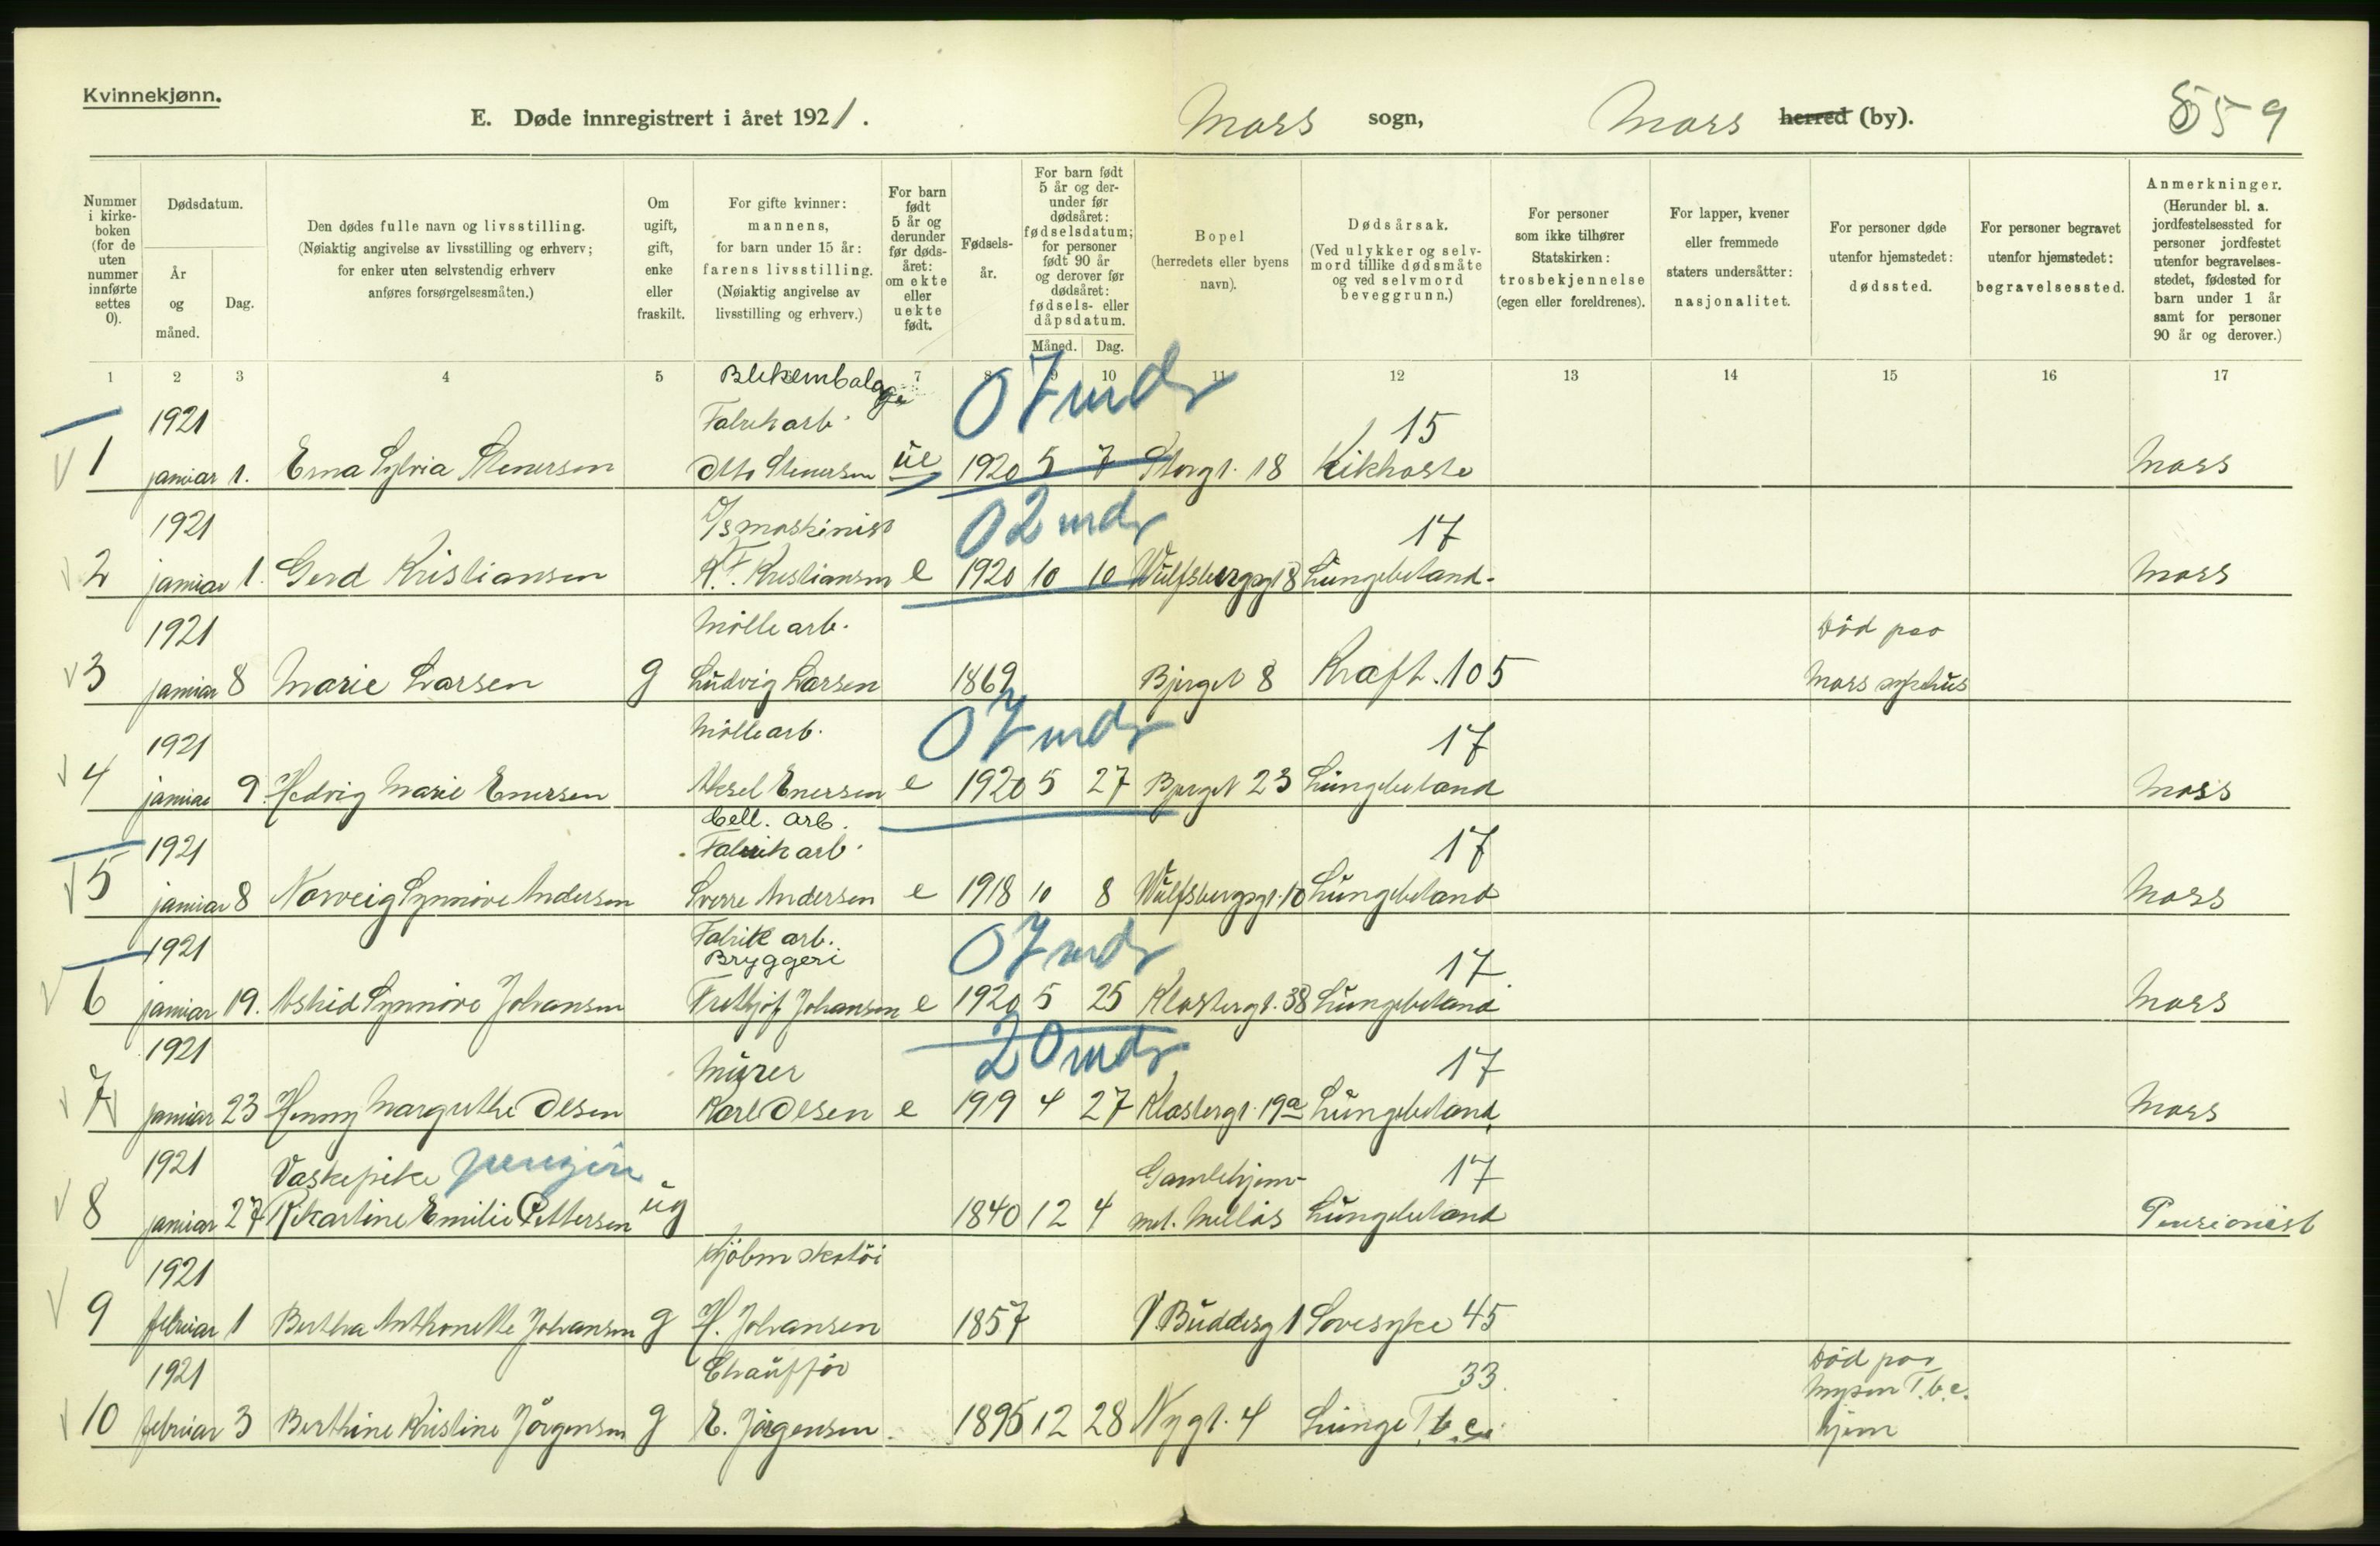 Kvinnekjønn.
E. Døde innregistrert i året 1921. Moss sogn, Moss herred (by).
559
Nummer i kirke-boken (for de uten nummer innførte settes 0).
Dødsdatum.
År og måned.
Dag.
Den dødes fulle navn og livsstilling.
(Nøiaktig angivelse av livsstilling og erhverv;
for enker uten selvstendig erhverv
anføres forsørgelsesmåten.)
Om ugift, gift, enke eller fraskilt.
For gifte kvinner:
mannens,
for barn under 15 år:
farens livsstilling.
(Nøiaktig angivelse av
livsstilling og erhverv.)
For barn født 5 år og derunder før døds-året: om ekte eller uekte født.
Fødsels-år.
For barn født 5 år og der-under før dødsåret: fødselsdatum; for personer født 90 år og derover før dødsåret: fødsels- eller dåpsdatum.
Måned.
Dag.
Bopel
(herredets eller byens
navn).
Dødsårsak.
(Ved ulykker og selv-
mord tillike dødsmåte
og ved selvmord
beveggrunn.)
For personer
som ikke tilhører
Statskirken:
trosbekjennelse
(egen eller foreldrenes).
For lapper, kvener
eller fremmede
staters undersåtter:
nasjonalitet.
For personer døde
utenfor hjemstedet:
dødssted.
For personer begravet
utenfor hjemstedet:
begravelsessted.
Anmerkninger.
(Herunder bl. a.
jordfestelsessted for
personer jordfestet
utenfor begravelses-
stedet, fødested for
barn under 1 år
samt for personer
90 år og derover.)
1 2 3 4 5 6 7 8 9 10 11 12 13 14 15 16 17
Blikemballage
1921 Fabrikarb. 0 7 mdr 15
1 januar 1. Erna Sylvia Stenersen Otto Stenersen ue 1920 5 7 Storgt. 18 Kikhoste Moss
1921 D/s maskinist 0 2 mdr 17
2 januar 1. Gerd Kristiansen K. F. Kristiansen e 1920 10 10 Wulfsbergsgt 8 Lungebetand. Moss
1921 Møllearb. Død paa
3 januar 8 Marie Larsen g Ludvig Larsen 1869 Bjerget 8 Kræft. 105 Moss sykehus
1921 Møllearb. 0 7 mdr 17
4 januar 9. Hedvig Marie Enersen Aksel Enersen e 1920 5 27 Bjerget 23 Lungebetand Moss
Cell. arb.
1921 Fabrikarb. 17
5 januar 8 Norveig Synnøve Andersen Sverre Andersen e 1918 10 8 Wulfsbergsgt. 10 Lungebetand Moss
1921 Fabrik arb. 0 7 mdr
Bryggeri 17
6 januar 19. Astrid Synnøve Johansen Frithjof Johansen e 1920 5 25 Klostergt. 38 Lungebetand Moss
1921 Murer 20 mdr 17
7 januar 23 Henny Margrethe Olsen Karl Olsen e 1919 4 27 Klostergt. 19a Lungebetand Moss
1921 Vaskepike Gamlehjem- 17
8 januar 27 Rikartine Emilie Pettersen ug 1840 12 4 met. Melløs Lungebetand Pensionist
1921 Kjøbm skotøi
9 februar 1 Bertha Anthonette Johansen g H. Johansen 1857 V. Buddesg 1 Sovesyke 45
1921 Chauffør 33 Død paa
Mysen T.b.c.
10 februar 3 Berthine Kristine Jørgensen g E. Jørgensen 1895 12 28 Nygt. 4 Lunge T.b.c. hjem